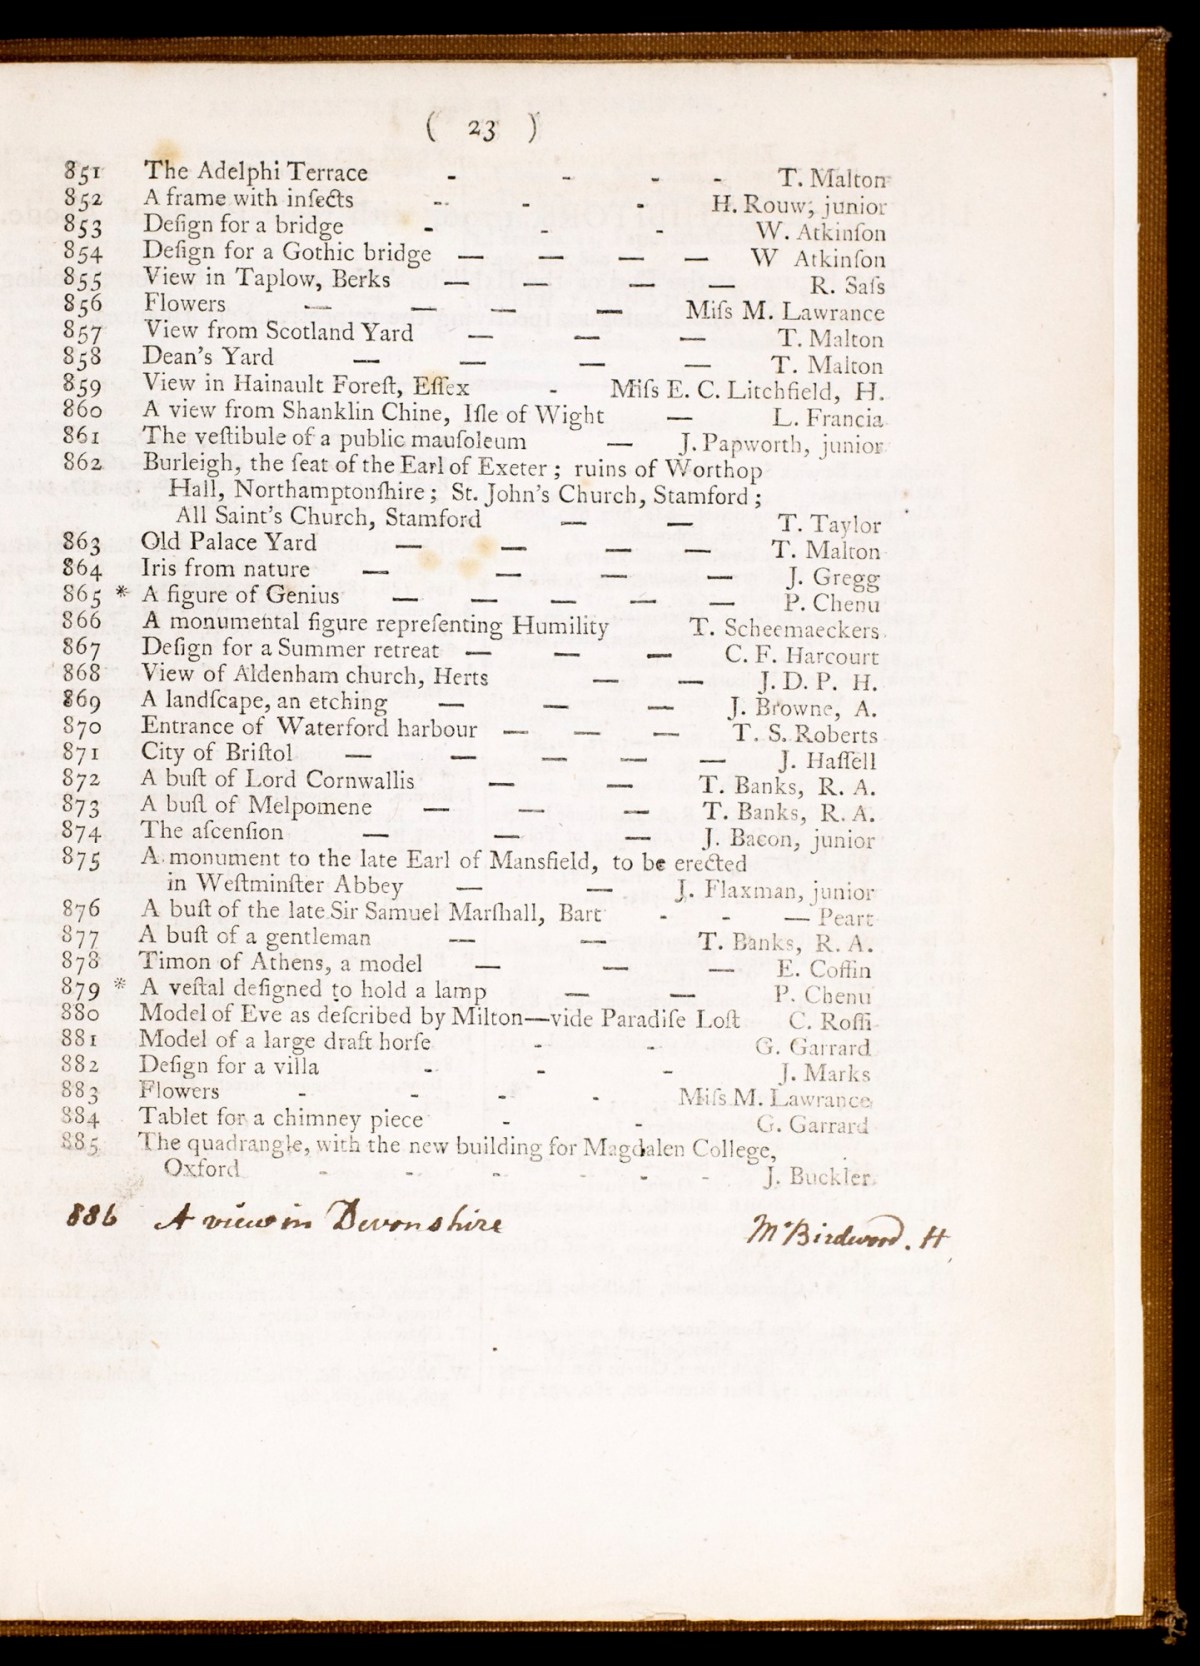 ( 23 )
851 The Adelphi Terrace - - - - T. Malton
852 A frame with inſects - - - H. Rouw, junior
853 Deſign for a bridge - - - W. Atkinſon
854 Deſign for a Gothic bridge — — — — W Atkinſon
855 View in Taplow, Berks — — — — R. Saſs
856 Flowers — — — — Miſs M. Lawrance
857 View from Scotland Yard — — — T. Malton
858 Dean's Yard — — — — T. Malton
859 View in Hainault Foreſt, Eſſex - Miſs E. C. Litchfield, H.
860 A view from Shanklin Chine, Iſle of Wight — L. Francia
861 The veſtibule of a public mauſoleum — J. Papworth, junior
862 Burleigh, the ſeat of the Earl of Exeter; ruins of Worthop
Hall, Northamptonſhire; St. John's Church, Stamford;
All Saint's Church, Stamford — — T. Taylor
863 Old Palace Yard — — — — T. Malton
864 Iris from nature — — — — J. Gregg
865 * A figure of Genius — — — — — P. Chenu
866 A monumental figure repreſenting Humility T. Scheemaeckers
867 Deſign for a Summer retreat — — — C. F. Harcourt
868 View of Aldenham church, Herts — — J. D. P. H.
869 A landſcape, an etching — — — J. Browne, A.
870 Entrance of Waterford harbour — — — T. S. Roberts
871 City of Briſtol — — — — — J. Haſſell
872 A buſt of Lord Cornwallis — — T. Banks, R. A.
873 A buſt of Melpomene — — — T. Banks, R. A.
874 The aſcenſion — — — J. Bacon, junior
875 A monument to the late Earl of Mansfield, to be erected
in Weſtminſter Abbey — — J. Flaxman, junior
876 A buſt of the late Sir Samuel Marſhall, Bart - - — Peart
877 A buſt of a gentleman — — T. Banks, R. A.
878 Timon of Athens, a model — — — E. Coffin
879 * A veſtal deſigned to hold a lamp — — P. Chenu
880 Model of Eve as deſcribed by Milton—vide Paradiſe Loſt C. Roſſi
881 Model of a large draft horſe - - G. Garrard
882 Deſign for a villa - - - J. Marks
883 Flowers - - - - Miſs M. Lawrance
884 Tablet for a chimney piece - - G. Garrard
885 The quadrangle, with the new building for Magdalen College,
Oxford - - - - - J. Buckler
886 A view in Devonshire Mr Birdwood. H